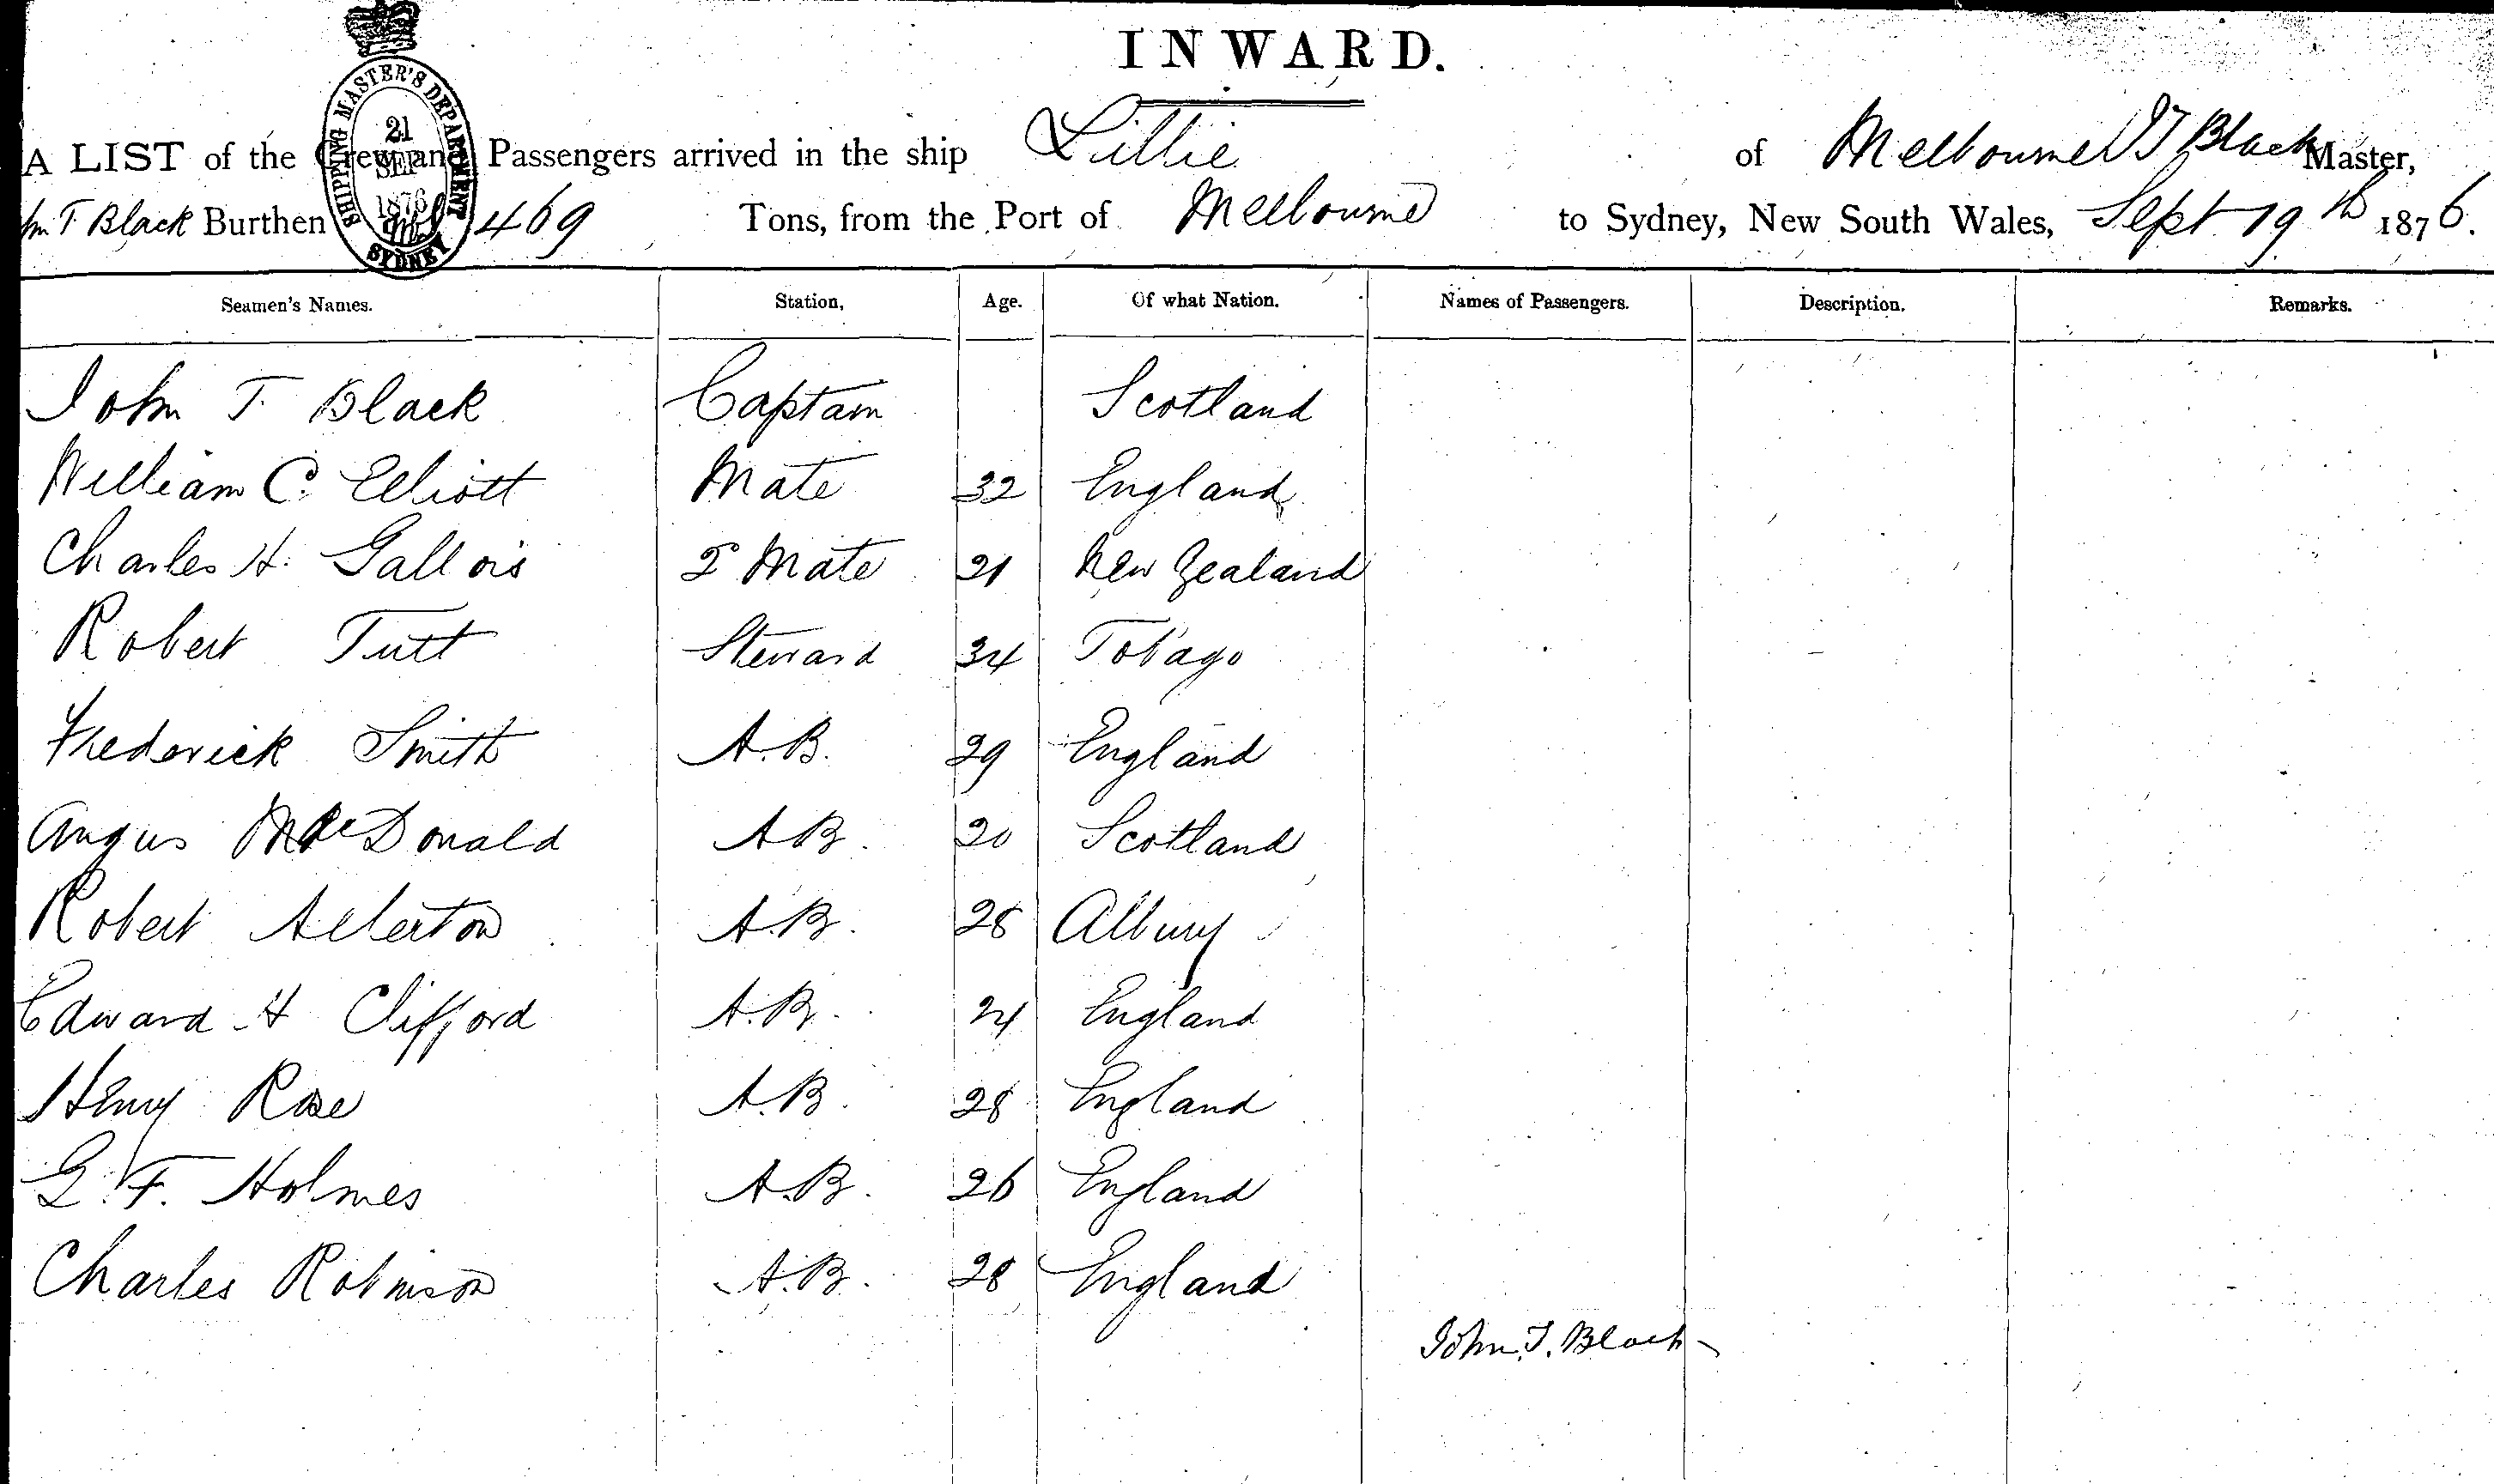 INWARD.
SHIPPING MASTER'S DEPARTMENT
21
SEP
1876
SYDNEY
A LIST of the Crew and Passengers arrived in the ship Lillie of Melbourne J T Black Master,
Jn T Black Burthen 469 Tons, from the Port of Melbourne to Sydney, New South Wales, Sept 19th 1876.
Seamen's Names. Station, Age. Of what Nation. Names of Passengers. Description. Remarks.
John T. Black Captain Scotland
William C. Elliott Mate 32 England
Charles H. Gallois 2 Mate 21 New Zealand
Robert Tutt Steward 34 Tobago
Frederick Smith A.B. 29 England
Angus McDonald A B. 20 Scotland
Robert Allerton A.B. 28 Albury
Edward H Clifford A.B. 24 England
Henry Rose A.B. 28 England
G. F. Holmes A.B. 26 England
Charles Robinson A.B. 28 England
John T. Black